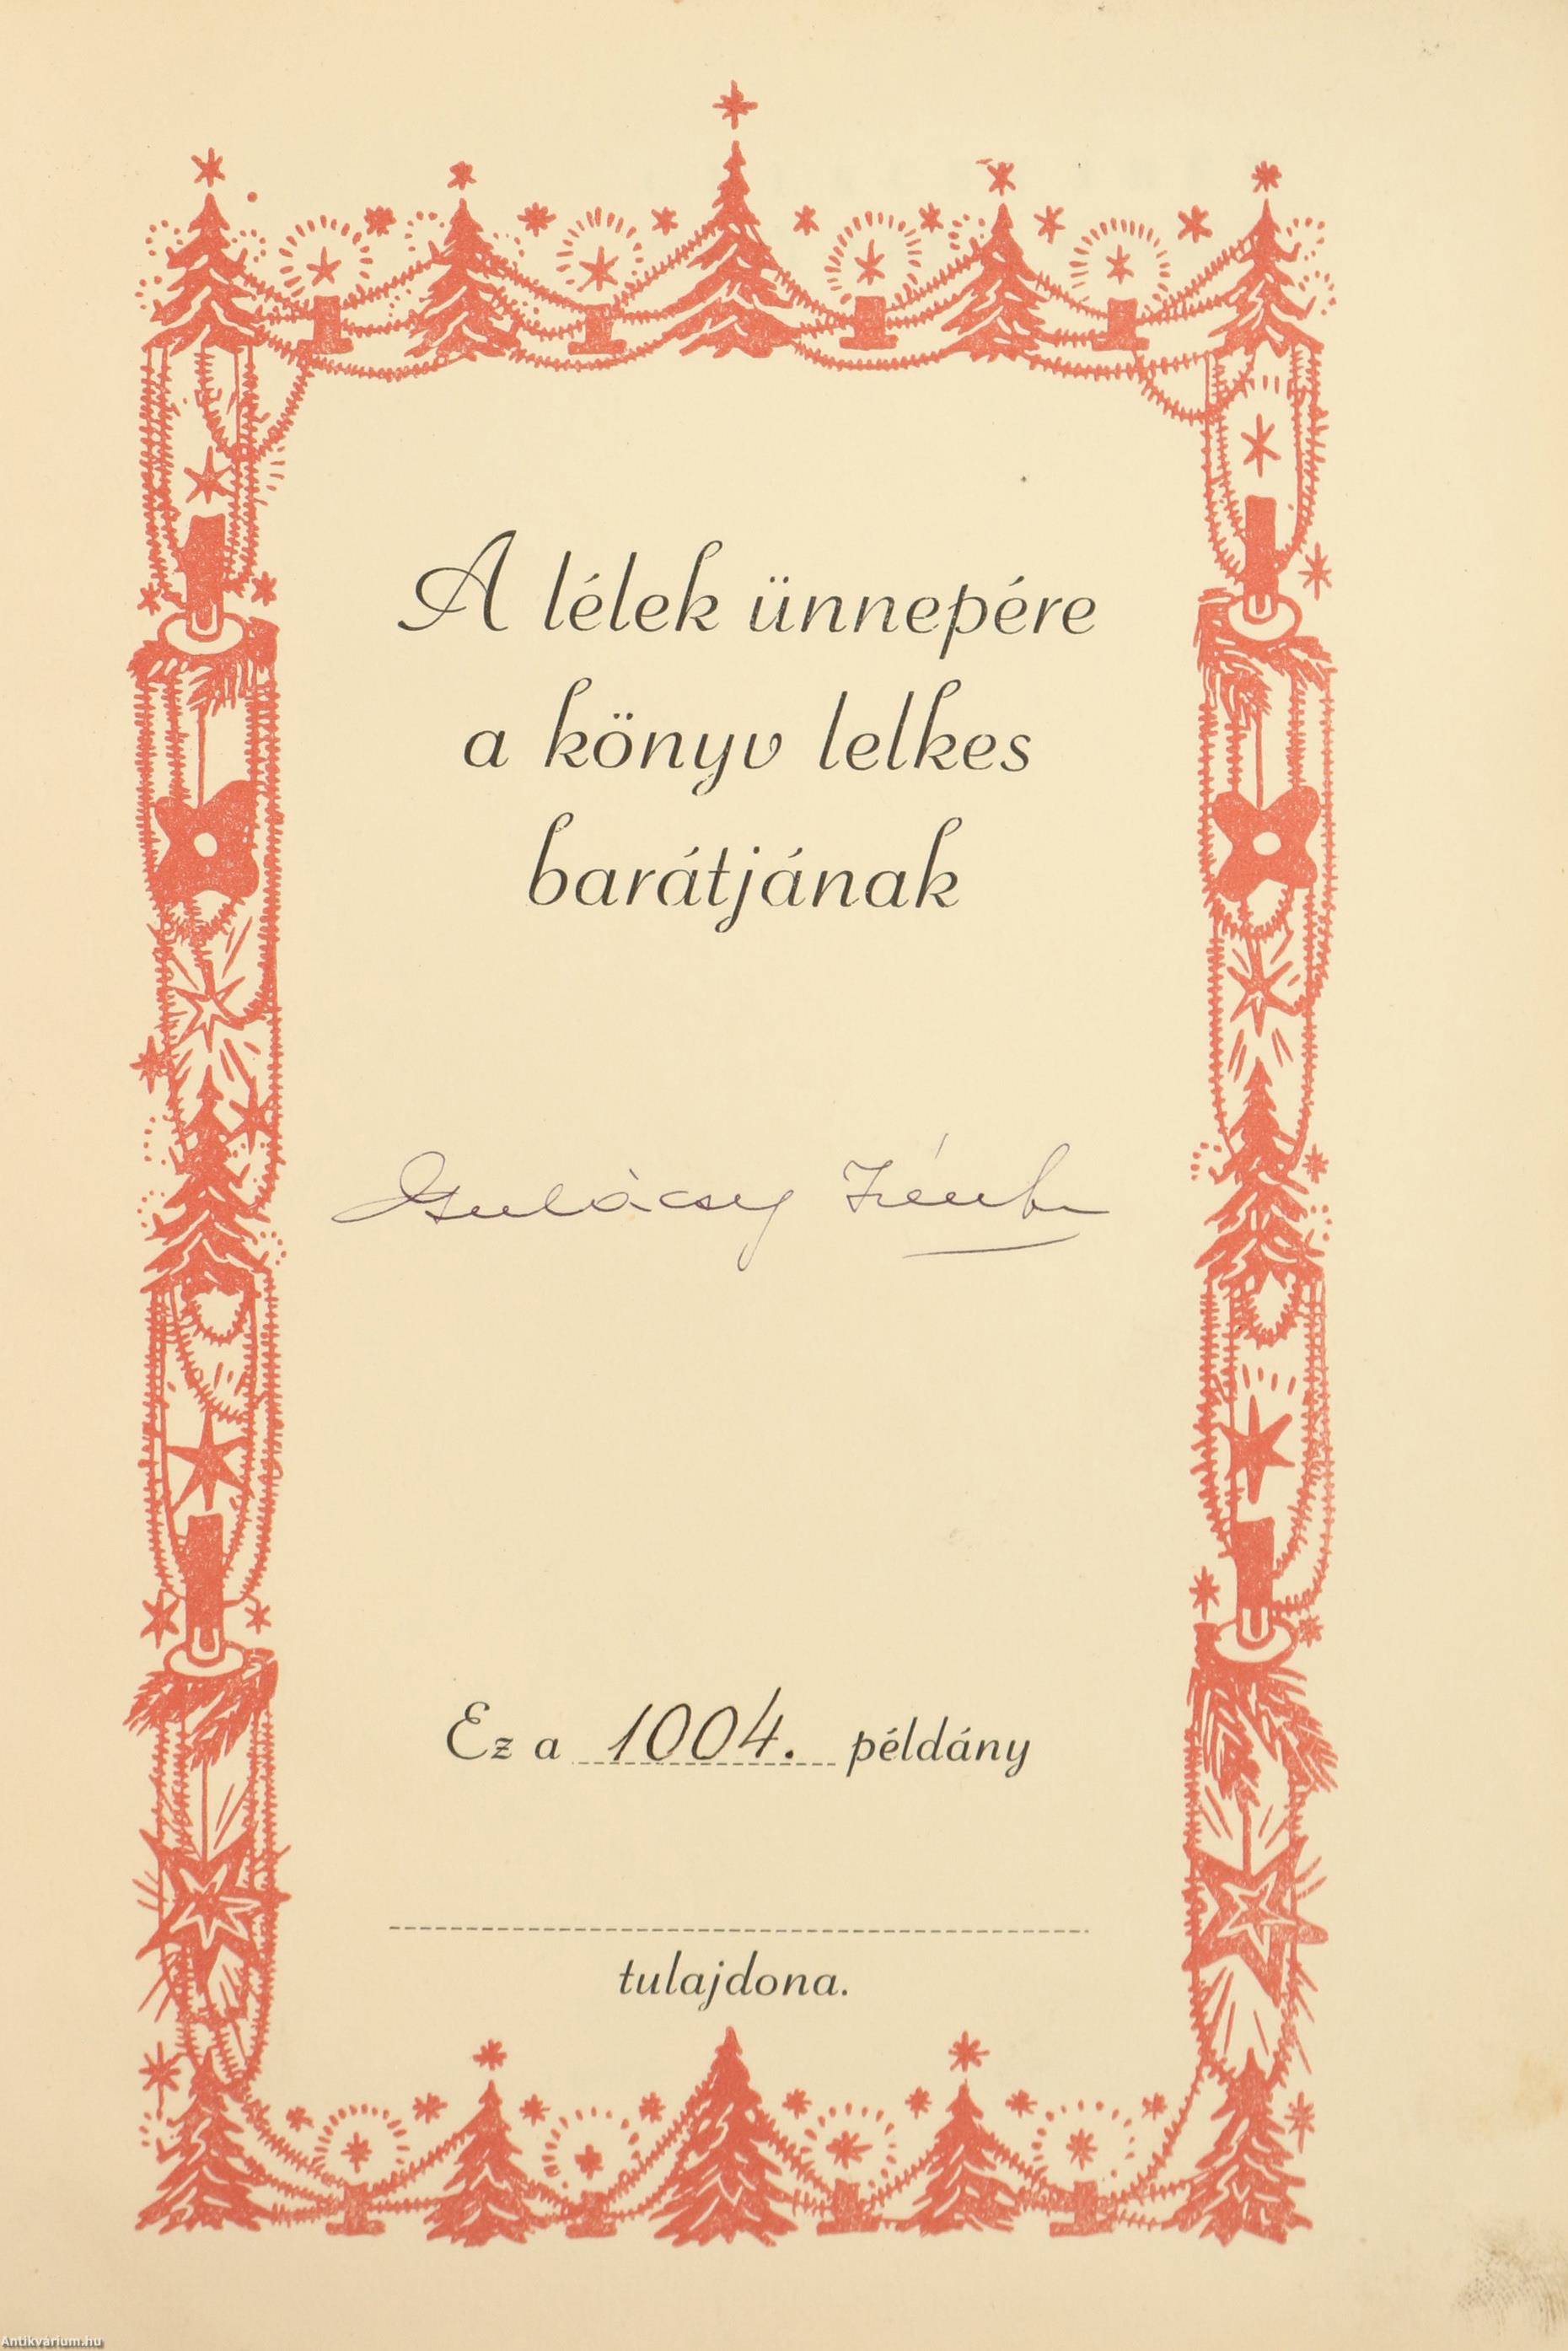 A lélek ünnepére
a könyv lelkes
barátjának
Gulácsy Irén
Ez a 1004. példány
tulajdona.
Antikvárium.hu